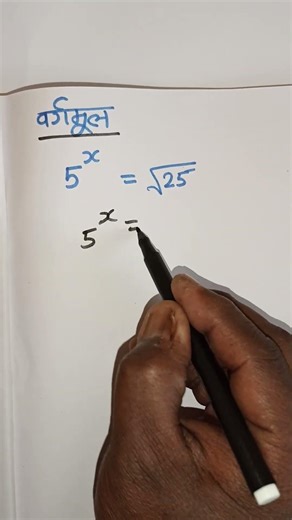 वर्गमूल
5^x = √25
5^x =